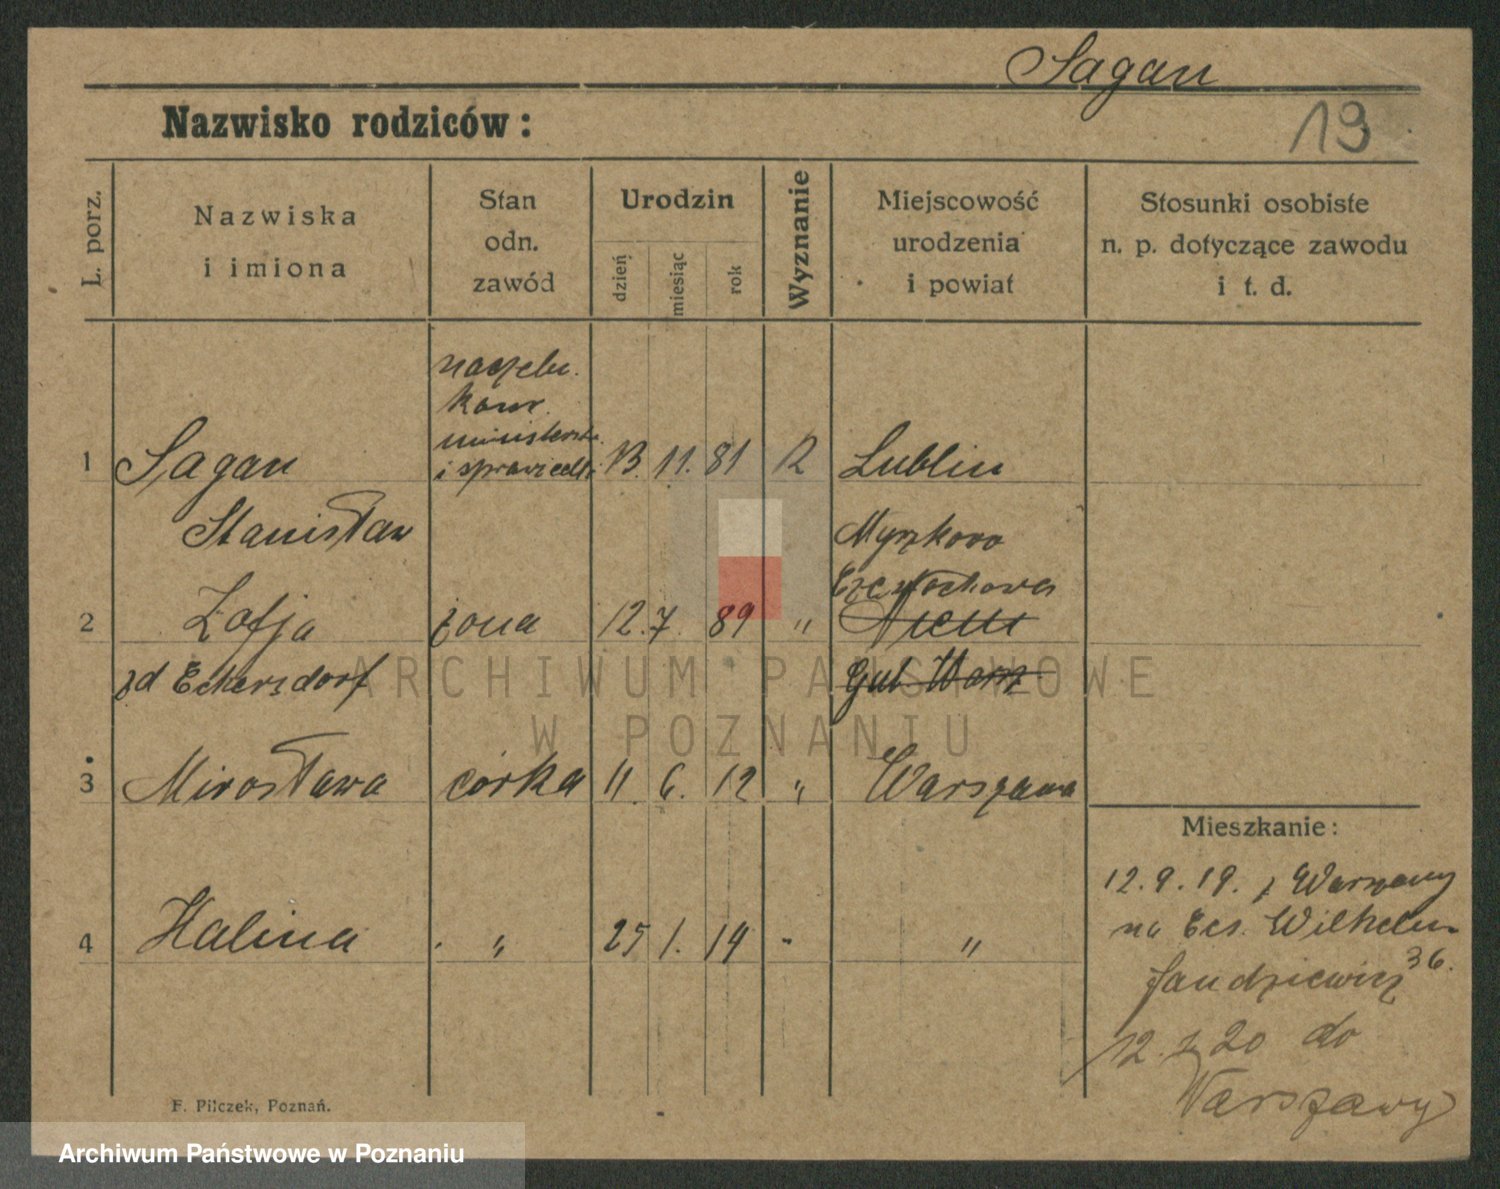 Sagan
19
Nazwisko rodziców:
L. porz.
Nazwiska
i imiona
Stan
odn.
zawód
Urodzin
dzień
miesiąc
rok
Wyznanie
Miejscowość
urodzenia
i powiat
Stosunki osobiste
n. p. dotyczące zawodu
i t. d.
naczeln.
ministerstw.
1 Sagan i sprawiedl. 13. 11. 81 R Lublin
Stanisław Myszkowo
Częstochowa
2 Zofja żona 12. 7. 89 "
zd Eckersdorf Gub Warsz
3 Mirosława córka 11. 6. 12 " Warszawa
Mieszkanie:
12.9.19. z Warszawy
na Ces. Wilhelm
36.
4 Halina " 25 1. 14 " "
12. 2 20 do
Warszawy
F. Pilczek, Poznań.
ARCHIWUM PAŃSTWOWE
W POZNANIU
Archiwum Państwowe w Poznaniu